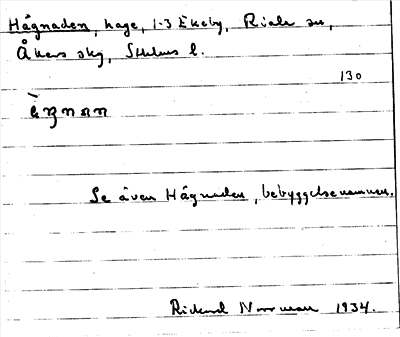 Hågnaden, hage, 1-3 Ekeby, Riala sn,
Åkers skg, Sthlms l.
130
Se även Hågnaden, bebyggelsenamnen.
Rickard Norrman 1934.